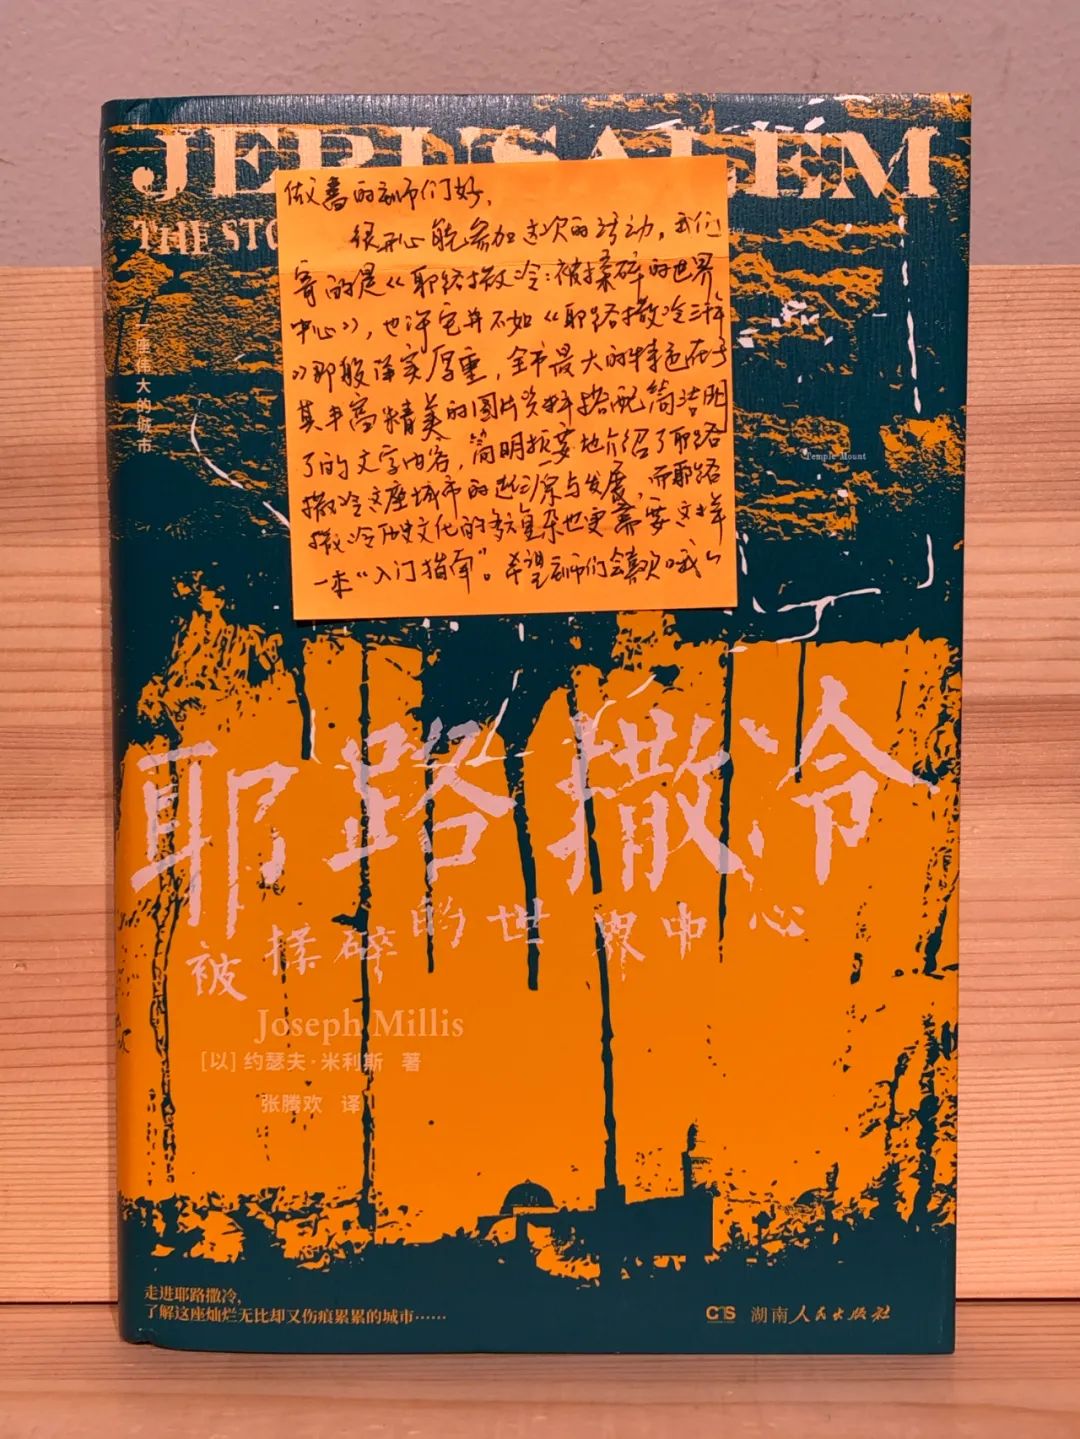 JERUSALEM
THE STO
做书的师们好，
很开心能参加这次的活动，我们
寄的是《耶路撒冷：被揉碎的世界
中心》，也许它并不如《耶路撒冷三千年
》那般详实厚重，全书最大的特色在于
其丰富精美的图片资料搭配简洁明
了的文字内容，简明扼要地介绍了耶路
撒冷这座城市的起源与发展，而耶路
撒冷历史文化的多元复杂也更需要这样
一本“入门指南”。希望师们会喜欢哦～
伟大的城市
Temple Mount
耶路撒冷
被揉碎的世界中心
Joseph Millis
[以] 约瑟夫·米利斯 著
张腾欢 译
走进耶路撒冷，
了解这座灿烂无比却又伤痕累累的城市……
湖南人民出版社